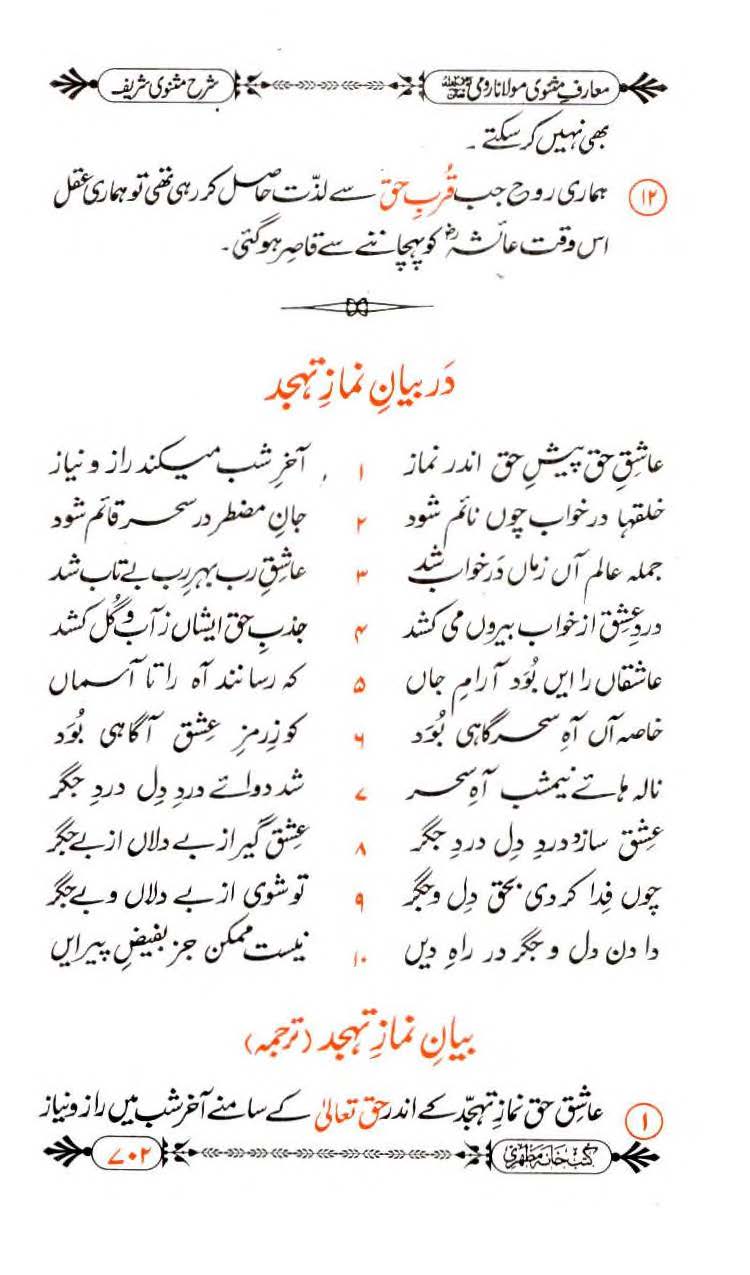 معارفِ مثنوی مولانا رومی شرح مثنوی شریف
بھی نہیں کر سکتے ۔
۱۲ ہماری روح جب قُربِ حق سے لذّت حاصل کر رہی تھی تو ہماری عقل
اس وقت عائشہؓ کو پہچاننے سے قاصِر ہوگئی ۔
دَر بیانِ نمازِ تہجد
عاشقِ حق پیشِ حق اندر نماز ۱ آخرِ شب میکند راز و نیاز
خلقہا در خواب چوں نائم شود ۲ جانِ مضطر در سحر قائم شود
جملہ عالم آں زماں دَر خواب شد ۳ عاشقِ رب بہرِ رب بے تاب شد
دردِ عِشق از خواب بیروں می کشد ۴ جذبِ حق ایشاں ز آب و گُل کشد
عاشقاں را ایں بُوَد آرامِ جاں ۵ کہ رسانند آہ را تا آسماں
خاصہ آں آہِ سحر گاہی بُوَد ۶ کو زِ رمزِ عِشق آگاہی بُوَد
نالہ ہائے نیمشب آہِ سحر ۷ شد دوائے دردِ دِل دردِ جگر
عِشق سازد دردِ دِل دردِ جگر ۸ عِشق گیر از بے دلاں از بے جگر
چوں فِدا کردی بحق دِل و جگر ۹ تو شوی از بے دلاں و بے جگر
دادن دل و جگر در راہِ دیں ۱۰ نیست ممکن جز بفیضِ پیر ایں
بیانِ نمازِ تہجد (ترجمہ)
۱ عاشقِ حق نمازِ تہجّد کے اندر حق تعالیٰ کے سامنے آخر شب میں راز و نیاز
کتب خانہ مظہری ۷۰۲